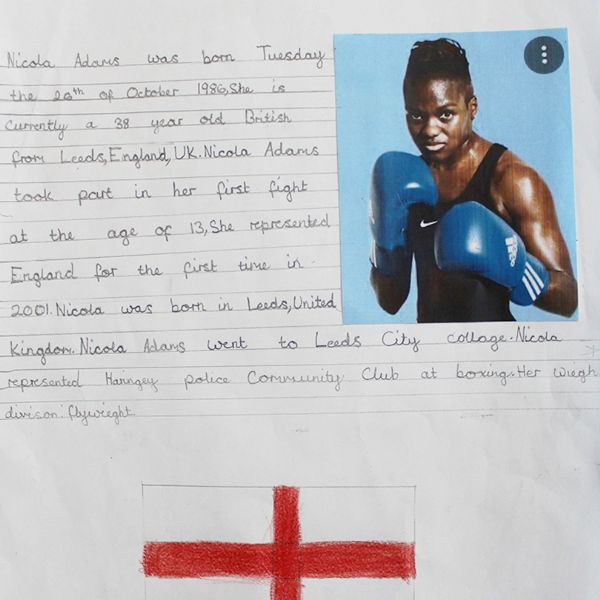 Nicola Adams was born Tuesday
the 26th of October 1986,She is
currently a 38 year old British
from Leeds,England,UK.Nicola Adams
took part in her first fight
at the age of 13,She represented
England for the first time in
2001.Nicola was born in Leeds,United
Kingdom.Nicola Adams went to Leeds City collage.Nicola
represented Haringey police Community Club at boxing.Her wiegh
divison:flywieght.
adidas